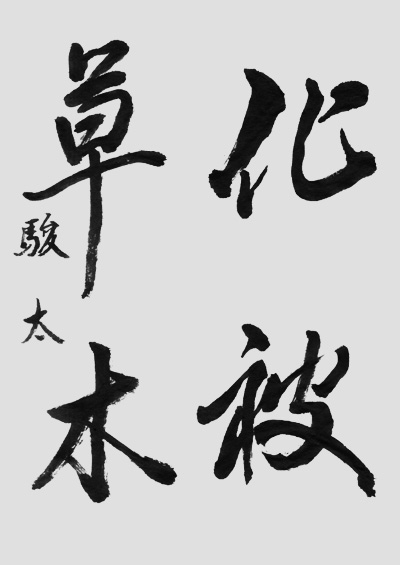 化被
草木
駿太